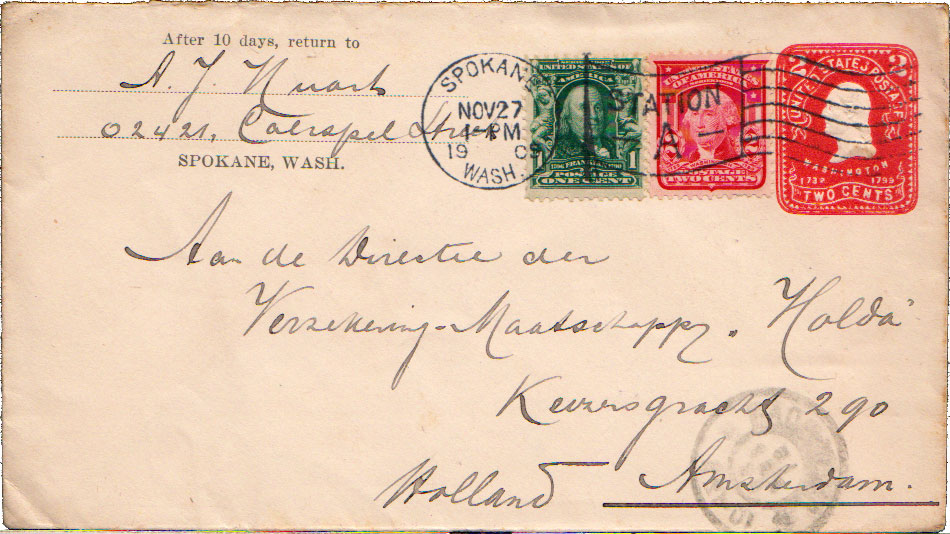 After 10 days, return to
A. J.
02421,
SPOKANE, WASH.
SPOKANE
NOV 27
PM
19
WASH.
STATION
A
UNITED STATES OF AMERICA
1 1
POSTAGE
ONE CENT
UNITED STATES
OF AMERICA
POSTAGE
TWO CENTS
2 UNITED STATES POSTAGE 2
WASHINGTON
1732 1799
TWO CENTS
Aan de Directie der
Verzekering-Maatschappy „Holda”
Keizersgracht 290
Holland Amsterdam.